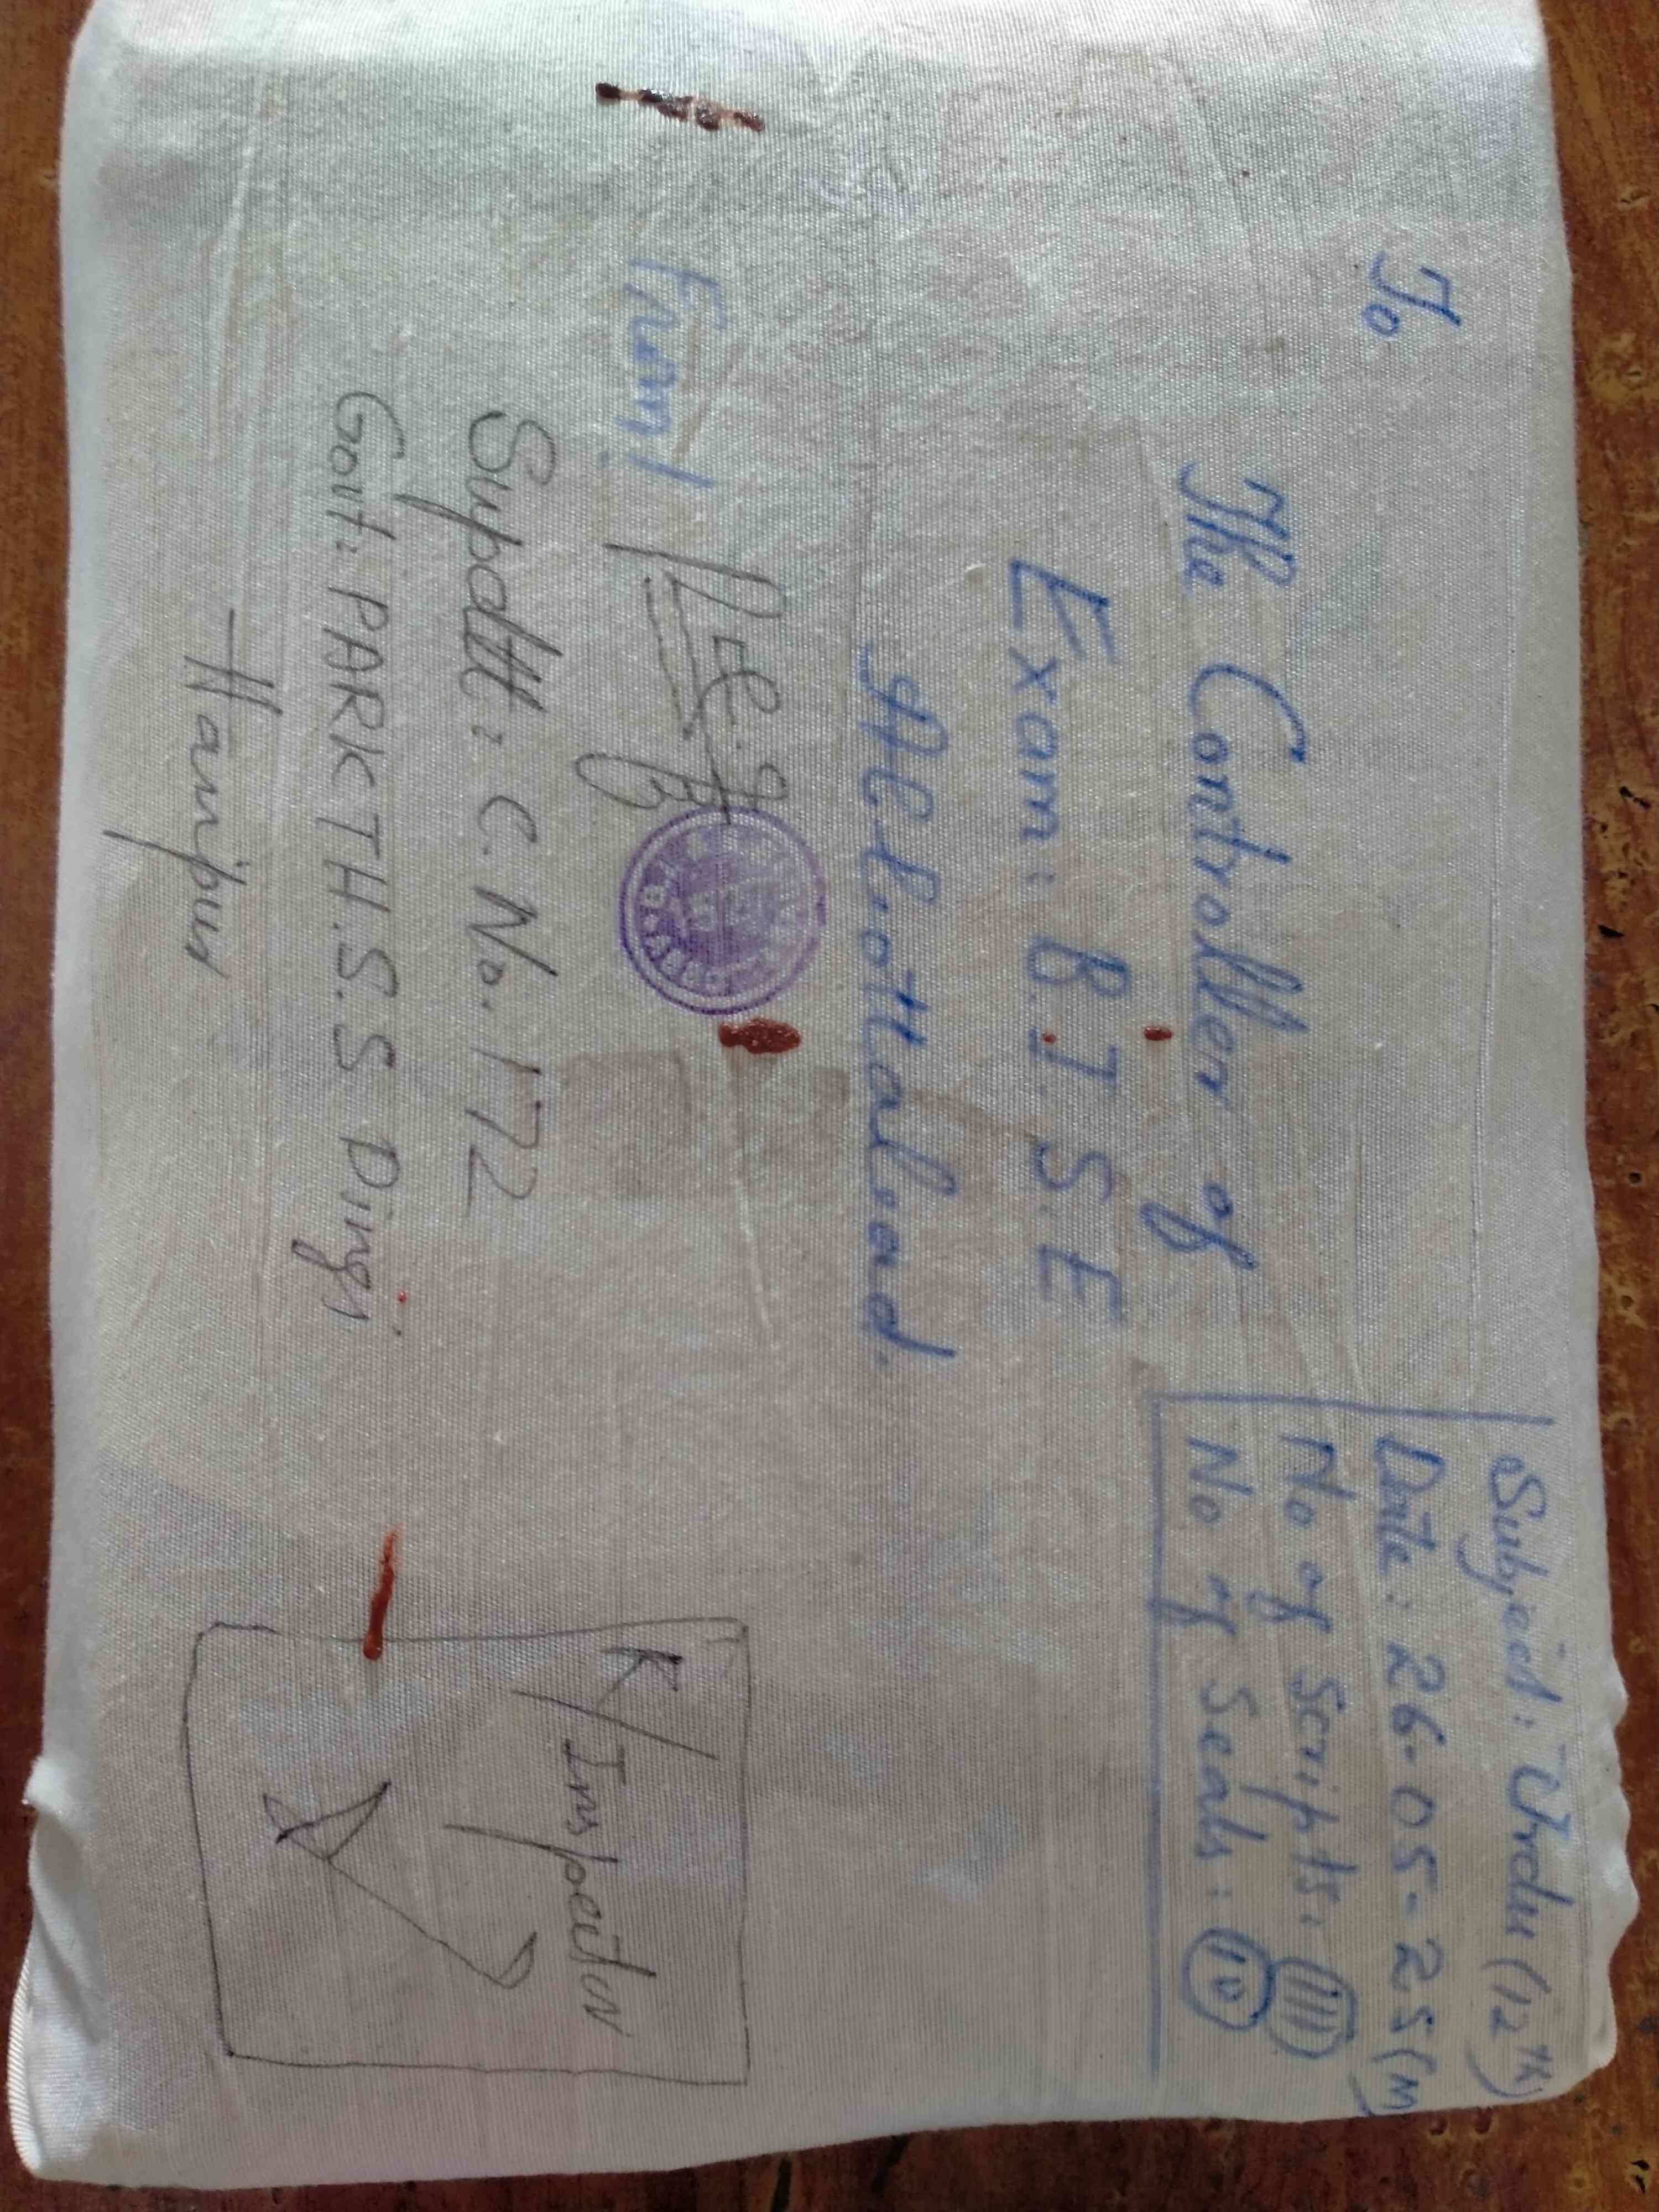 Subject: Urdu (12th)
Date: 26-05-25 (M)
No of Scripts:
No of Seals: 10
To
The Controller of
Exam: B.I.S.E
Abbottabad.
From/
Supdtt: C. No. 172
Govt: PARKTH.S.S Dingi
Haripur
R/Inspector